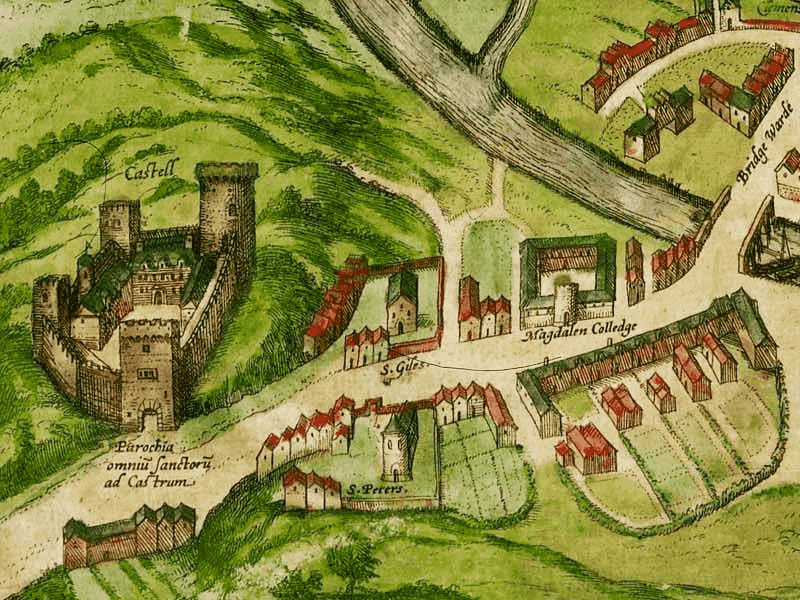 Clemen
Bridge Warde
Castell
Magdalen Colledge
S. Giles
Parochia
omniū sanctorū
ad Castrum
S. Peters.